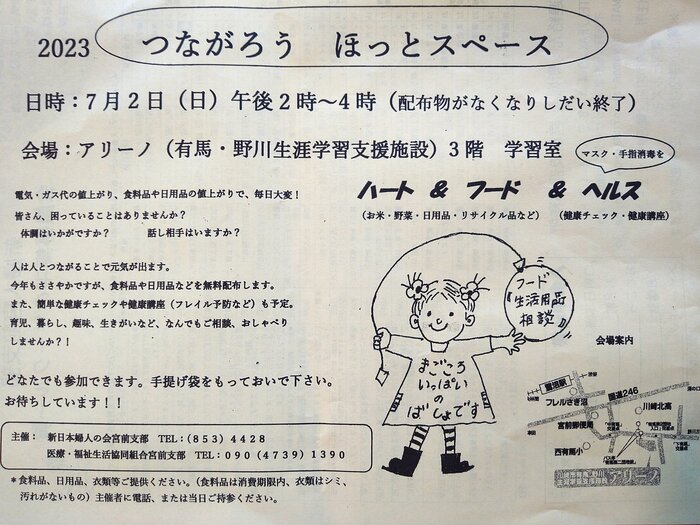 2023 つながろう ほっとスペース
日時：7月2日（日）午後2時～4時（配布物がなくなりしだい終了）
会場：アリーノ（有馬・野川生涯学習支援施設）3階 学習室
マスク・手指消毒を
電気・ガス代の値上がり、食料品や日用品の値上がりで、毎日大変！
皆さん、困っていることはありませんか？
体調はいかがですか？ 話し相手はいますか？
ハート & フード & ヘルス
（お米・野菜・日用品・リサイクル品など）
（健康チェック・健康講座）
人は人とつながることで元気が出ます。
今年もささやかですが、食料品や日用品などを無料配布します。
また、簡単な健康チェックや健康講座（フレイル予防など）も予定。
育児、暮らし、趣味、生きがいなど、なんでもご相談、おしゃべり
しませんか？！
フード
『生活用品
相談』
まごころ
いっぱい
の
ばしょです
どなたでも参加できます。手提げ袋をもっておいで下さい。
お待ちしています！！
主催： 新日本婦人の会宮前支部 TEL：(853) 4428
医療・福祉生活協同組合宮前支部 TEL：090 (4739) 1390
＊食料品、日用品、衣類等ご提供ください。（食料品は消費期限内、衣類はシミ、
汚れがないもの）主催者に電話、または当日ご持参ください。
会場案内
鷺沼駅
渋谷
フレルさぎ沼
国道246
川崎北高
宮前郵便局
西有馬小
アリーノ